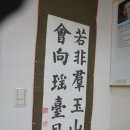 若非羣玉山
會向瑤臺月